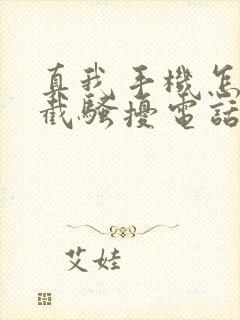 真我手機怎
截騷擾電話
艾娃